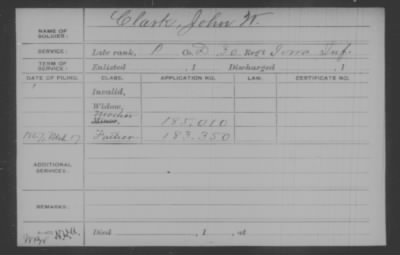 NAME OF SOLDIER: Clark, John W.
SERVICE: Late rank, P Co. D, 30 Reg't Iowa Inf.
TERM OF SERVICE: Enlisted , 1 Discharged , 1
DATE OF FILING. CLASS. APPLICATION NO. LAW. CERTIFICATE NO.
Invalid,
Widow,
Mother
Minor, 185,010
1867, Mch 17 Father 183.350
ADDITIONAL SERVICES.
REMARKS:
Died , 1 , at